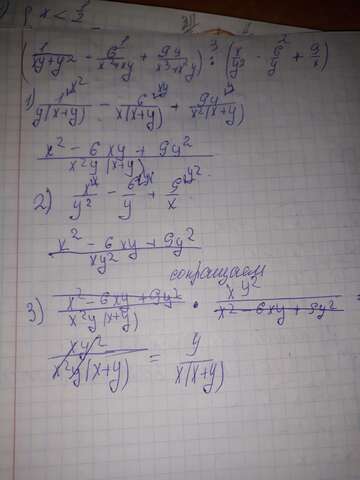 x < 1/2
(1/(xy+y²) - 6/(x²+xy) + 9y/(x³+x²y)) : (x/y² - 6/y + 9/x)
1) 1/(y(x+y)) - 6/(x(x+y)) + 9y/(x²(x+y))
(x² - 6xy + 9y²)/(x²y(x+y))
2) x/y² - 6/y + 9/x
(x² - 6xy + 9y²)/(xy²)
сокращаем
3) (x² - 6xy + 9y²)/(x²y(x+y)) · xy²/(x² - 6xy + 9y²)
xy²/(x²y(x+y)) = y/(x(x+y))